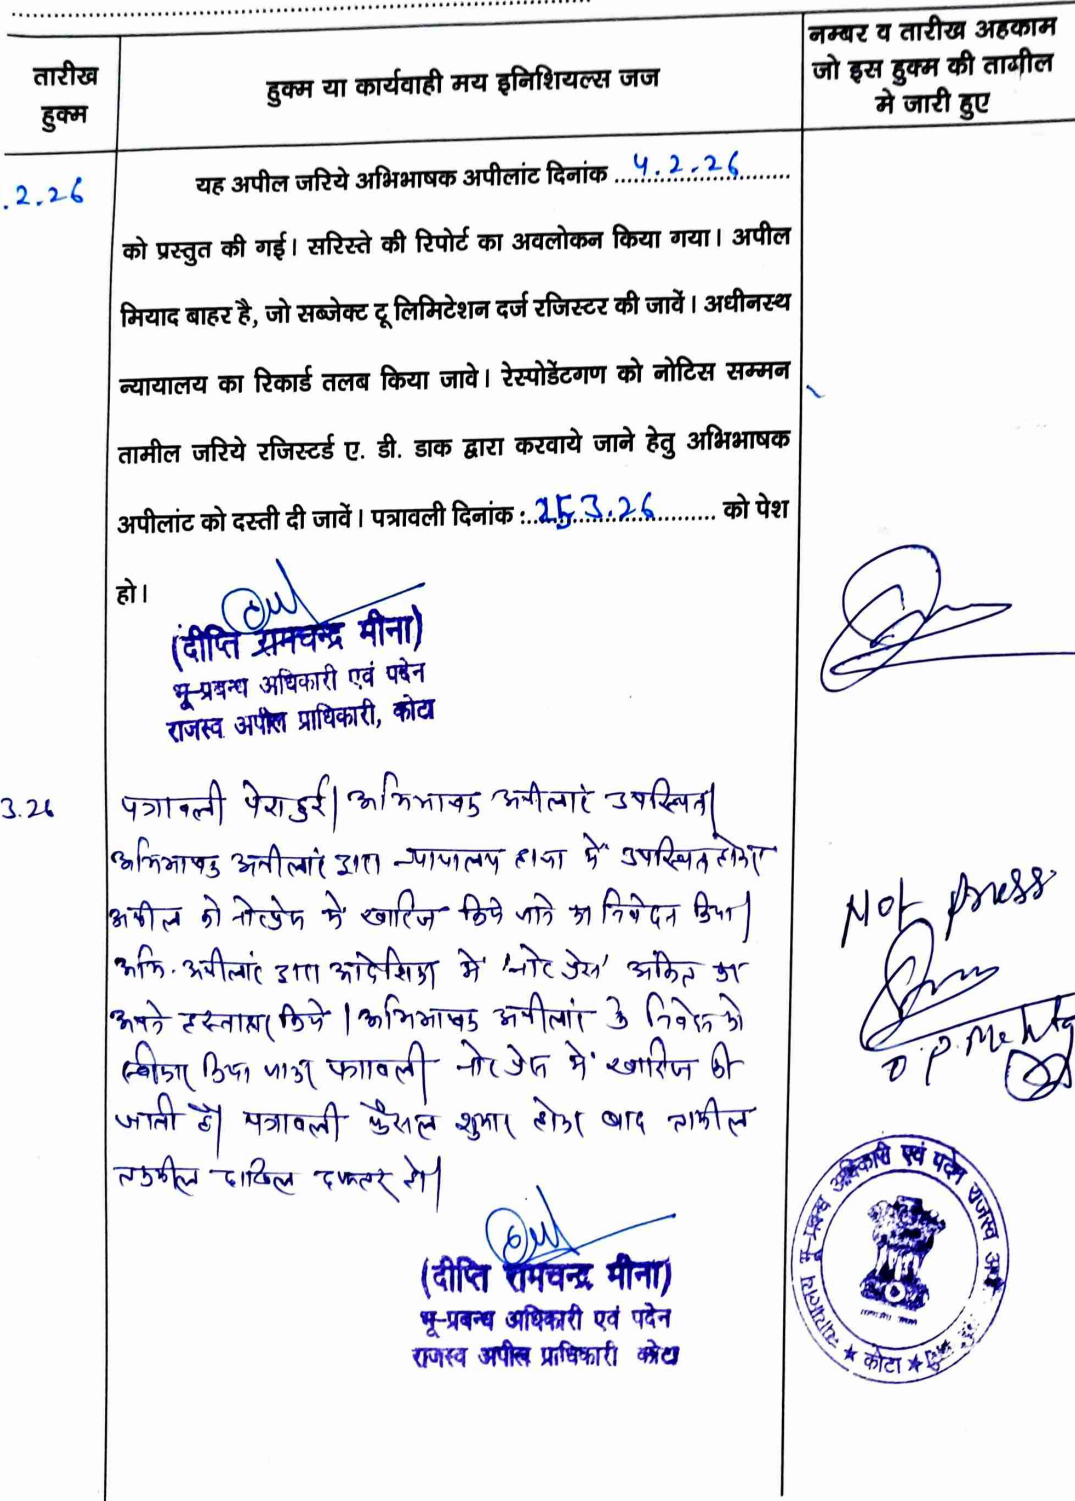 तारीख
हुक्म
हुक्म या कार्यवाही मय इनिशियल्स जज
नम्बर व तारीख अहकाम
जो इस हुक्म की तामील
मे जारी हुए
.2.26
यह अपील जरिये अभिभाषक अपीलांट दिनांक 4.2.26
को प्रस्तुत की गई। सरिस्ते की रिपोर्ट का अवलोकन किया गया। अपील
मियाद बाहर है, जो सब्जेक्ट टू लिमिटेशन दर्ज रजिस्टर की जावें। अधीनस्थ
न्यायालय का रिकार्ड तलब किया जावे। रेस्पोडेंटगण को नोटिस सम्मन
तामील जरिये रजिस्टर्ड ए. डी. डाक द्वारा करवाये जाने हेतु अभिभाषक
अपीलांट को दस्ती दी जावें। पत्रावली दिनांक : 25.3.26 को पेश
हो।
(दीप्ति रामचन्द्र मीना)
भू-प्रबन्ध अधिकारी एवं पदेन
राजस्व अपील प्राधिकारी, कोटा
3.26
पत्रावली पेश हुई। अभिभाषक अपीलांट उपस्थित।
अभिभाषक अपीलांट द्वारा न्यायालय हाजा में उपस्थित होकर
अपील को नोटप्रेस में खारिज किये जाने का निवेदन किया।
अभि. अपीलांट द्वारा आदेशिका में 'नोट प्रेस' अंकित कर
अपने हस्ताक्षर किये। अभिभाषक अपीलांट के निवेदन को
स्वीकार किया जाकर पत्रावली नोट प्रेस में खारिज की
जाती है। पत्रावली फैसल शुमार होकर बाद तामील
तकमील दाखिल दफ्तर हो।
Not press
O.P. Mehta
(दीप्ति रामचन्द्र मीना)
भू-प्रबन्ध अधिकारी एवं पदेन
राजस्व अपील प्राधिकारी कोटा
न्यायालय भू-प्रबन्ध अधिकारी एवं पदेन राजस्व
★ कोटा ★